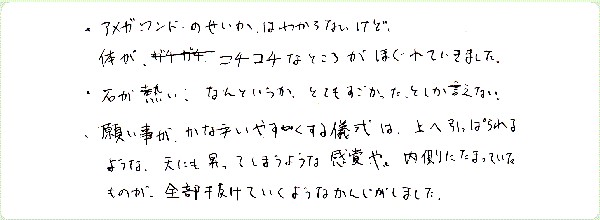 ・アメガランドのせいか、はわからないけど、
体が、ガチガチ コチコチなところがほぐれていきました。
・石が熱い、なんというか、とてもすごかった、としか言えない。
、願い事が、かないやすくする儀式は、上へ引っぱられる
ような、天にも昇ってしまうような感覚や。内側にたまっていた
ものが、全部抜けていくようなかんじがしました。